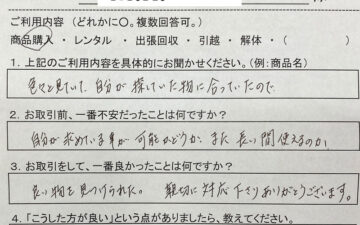 ご利用内容（どれかに○。複数回答可。）
商品購入 ・ レンタル ・ 出張回収 ・ 引越 ・ 解体 ・（　　　　）
1. 上記のご利用内容を具体的にお聞かせください。（例：商品名）
色々と見ていて、自分が探していた物に合っていたので
2. お取引前、一番不安だったことは何ですか？
自分が求めている事が可能かどうか、また長い間使えるのか
3. お取引をして、一番良かったことは何ですか？
良い物を見つけられた。 親切に対応下さりありがとうございます。
4. 「こうした方が良い」という点がありましたら、教えてください。